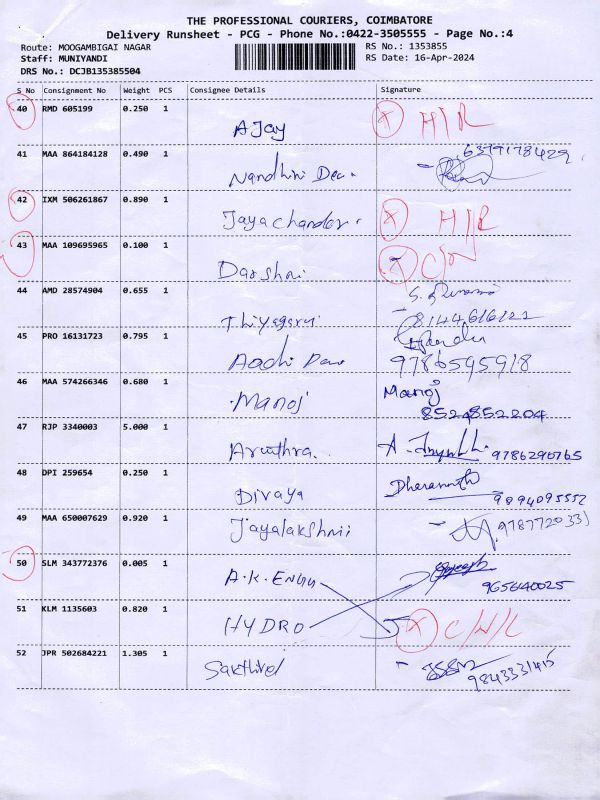 THE PROFESSIONAL COURIERS, COIMBATORE
Delivery Runsheet - PCG - Phone No.:0422-3505555 - Page No.:4
Route: MOOGAMBIGAI NAGAR RS No.: 1353855
Staff: MUNIYANDI RS Date: 16-Apr-2024
DRS No.: DCJB135385504
S No Consignment No Weight PCS Consignee Details Signature
40 RMD 605199 0.250 1 AJay X H/R
41 MAA 864184128 0.490 1 Nandhini Dec. 6379178429
42 IXM 506261867 0.890 1 Jayachander. X H/R
43 MAA 109695965 0.100 1 Darshni X
44 AMD 28574904 0.655 1 Thiyagaraj 8144616122
45 PRO 16131723 0.795 1 Aadhi 9786595918
46 MAA 574266346 0.680 1 Manoj Manoj 8524852204
47 RJP 3340003 5.000 1 Aruthra. 9786290765
48 DPI 259654 0.250 1 Divaya 9894095552
49 MAA 650007629 0.920 1 Jayalakshmi
50 SLM 343772376 0.005 1 A.K. 965640025
51 KLM 1135603 0.820 1 HYDRO X
52 JPR 502684221 1.305 1 Sakthivel 9843331415